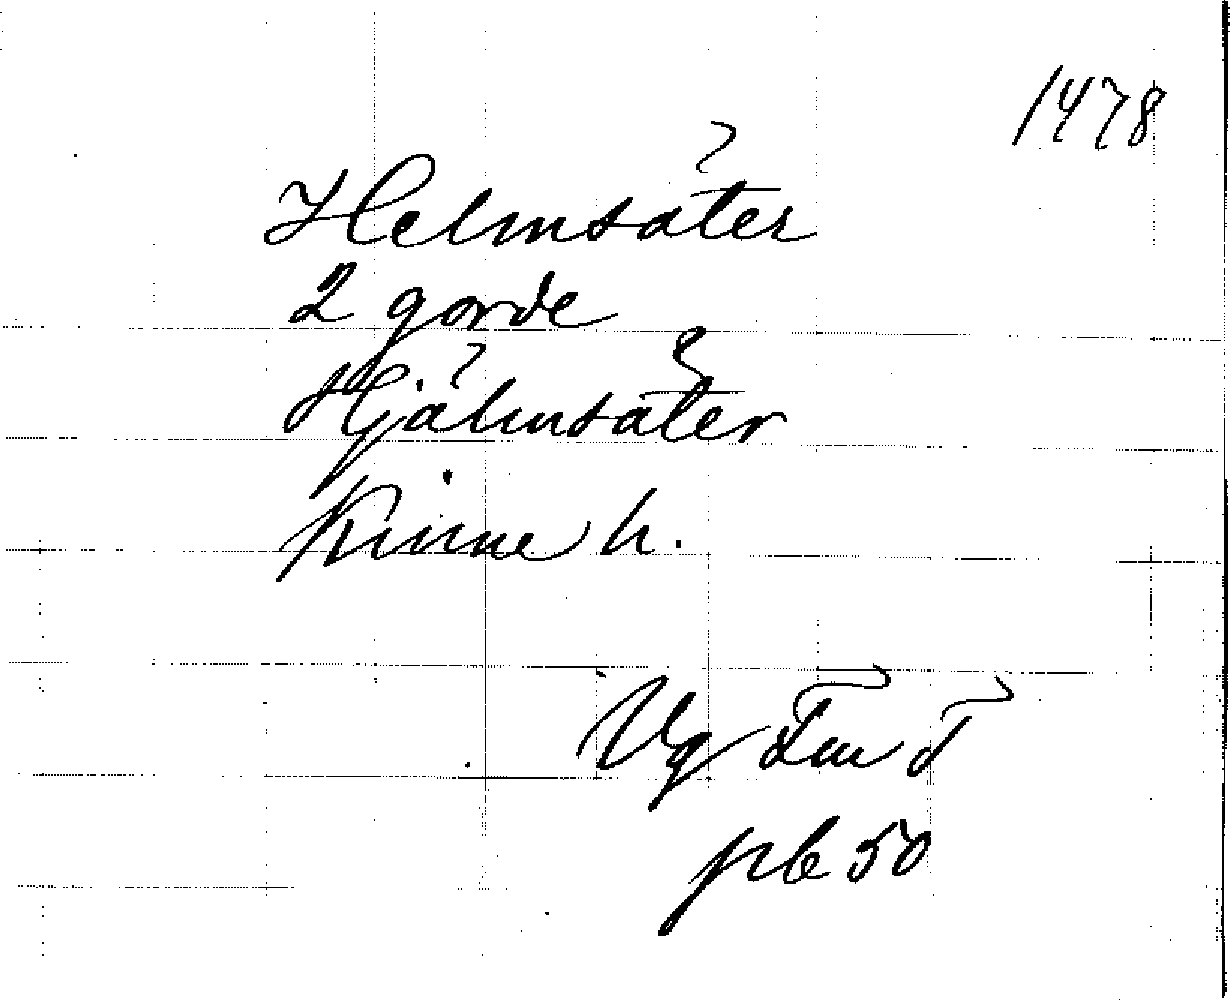 1478
Helmsäter
2 gorde
Hjälmsäter
Kinne h.
Vg Fru T
pb 50